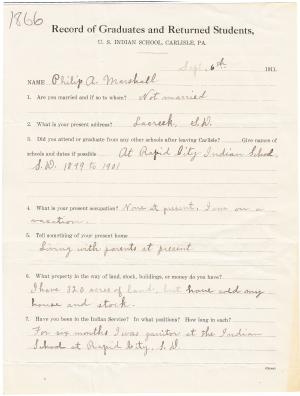 1866
Record of Graduates and Returned Students,
U. S. INDIAN SCHOOL, CARLISLE, PA.
Sept. 6th 1911.
NAME Philip A. Marshall
1. Are you married and if so to whom? Not married
2. What is your present address? Lacreek, S.D.
3. Did you attend or graduate from any other schools after leaving Carlisle? Give names of
schools and dates if possible At Rapid City Indian School,
S.D. 1899 to 1901
4. What is your present occupation? None at present, I am on a
vacation.
5. Tell something of your present home
Living with parents at present
6. What property in the way of land, stock, buildings, or money do you have?
I have 320 acres of land, but have sold my
house and stock.
7. Have you been in the Indian Service? In what positions? How long in each?
For six months I was janitor at the Indian
School at Rapid City, S.D.